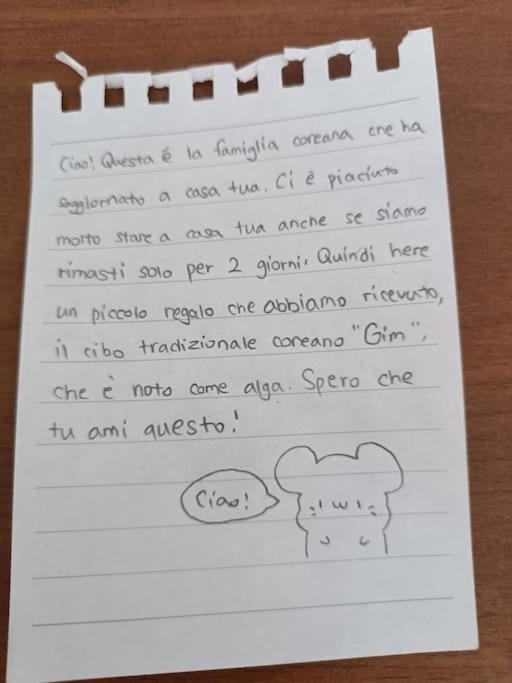 Ciao! Questa é la famiglia coreana che ha
soggiornato a casa tua. Ci è piaciuto
morto stare a casa tua anche se siamo
rimasti solo per 2 giorni. Quindi here
un piccolo regalo che abbiamo ricevuto,
il cibo tradizionale coreano "Gim",
che è noto come alga. Spero che
tu ami questo!
Ciao!